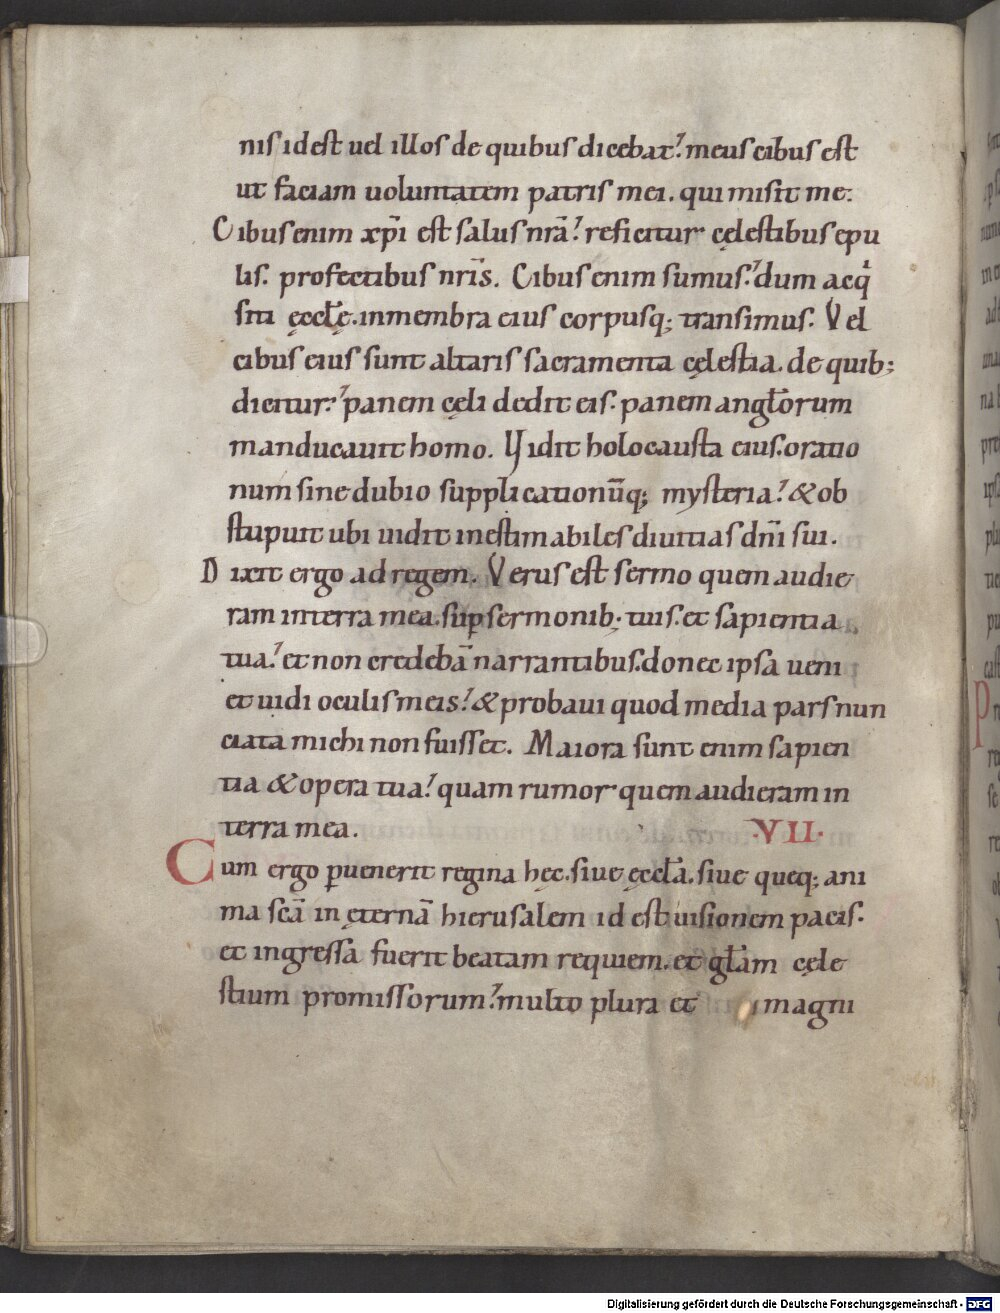 nis idest uel illos de quibus dicebat? meus cibus est
ut faciam uoluntatem patris mei. qui misit me.
Cibus enim xp̄i est salus nr̄a? reficitur cęlestibus epu
lis. profectibus nr̄is. Cibus enim sumus? dum acq
siti ęccłę. inmembra eius corpusq; transimus. Vel
cibus eius sunt altaris sacramenta cęlestia. de quib;
dicitur? panem cęli dedit eis. panem angłorum
manducauit homo. Vidit holocausta eius. oratio
num sine dubio supplicationūq; mysteria? & ob
stupuit ubi uidit inestimabiles diuitias dn̄i sui.
Dixit ergo ad regem. Verus est sermo quem audie
ram interra mea. sup sermonib; tuis. et sapientia
tua? et non credebā narrantibus. donec ipsa ueni
et uidi oculis meis? & probaui quod media pars nun
ciata michi non fuisset. Maiora sunt enim sapien
tia & opera tua? quam rumor quem audieram in
terra mea. .VII.
Cum ergo p̱uenerit regina hęc. siue ęccła. siue queq; ani
ma scā in ęternā hierusalem id est uisionem pacis.
et ingressa fuerit beatam requiem. et głam cęle
stium promissorum? multo plura et magni
Digitalisierung gefördert durch die Deutsche Forschungsgemeinschaft - DFG